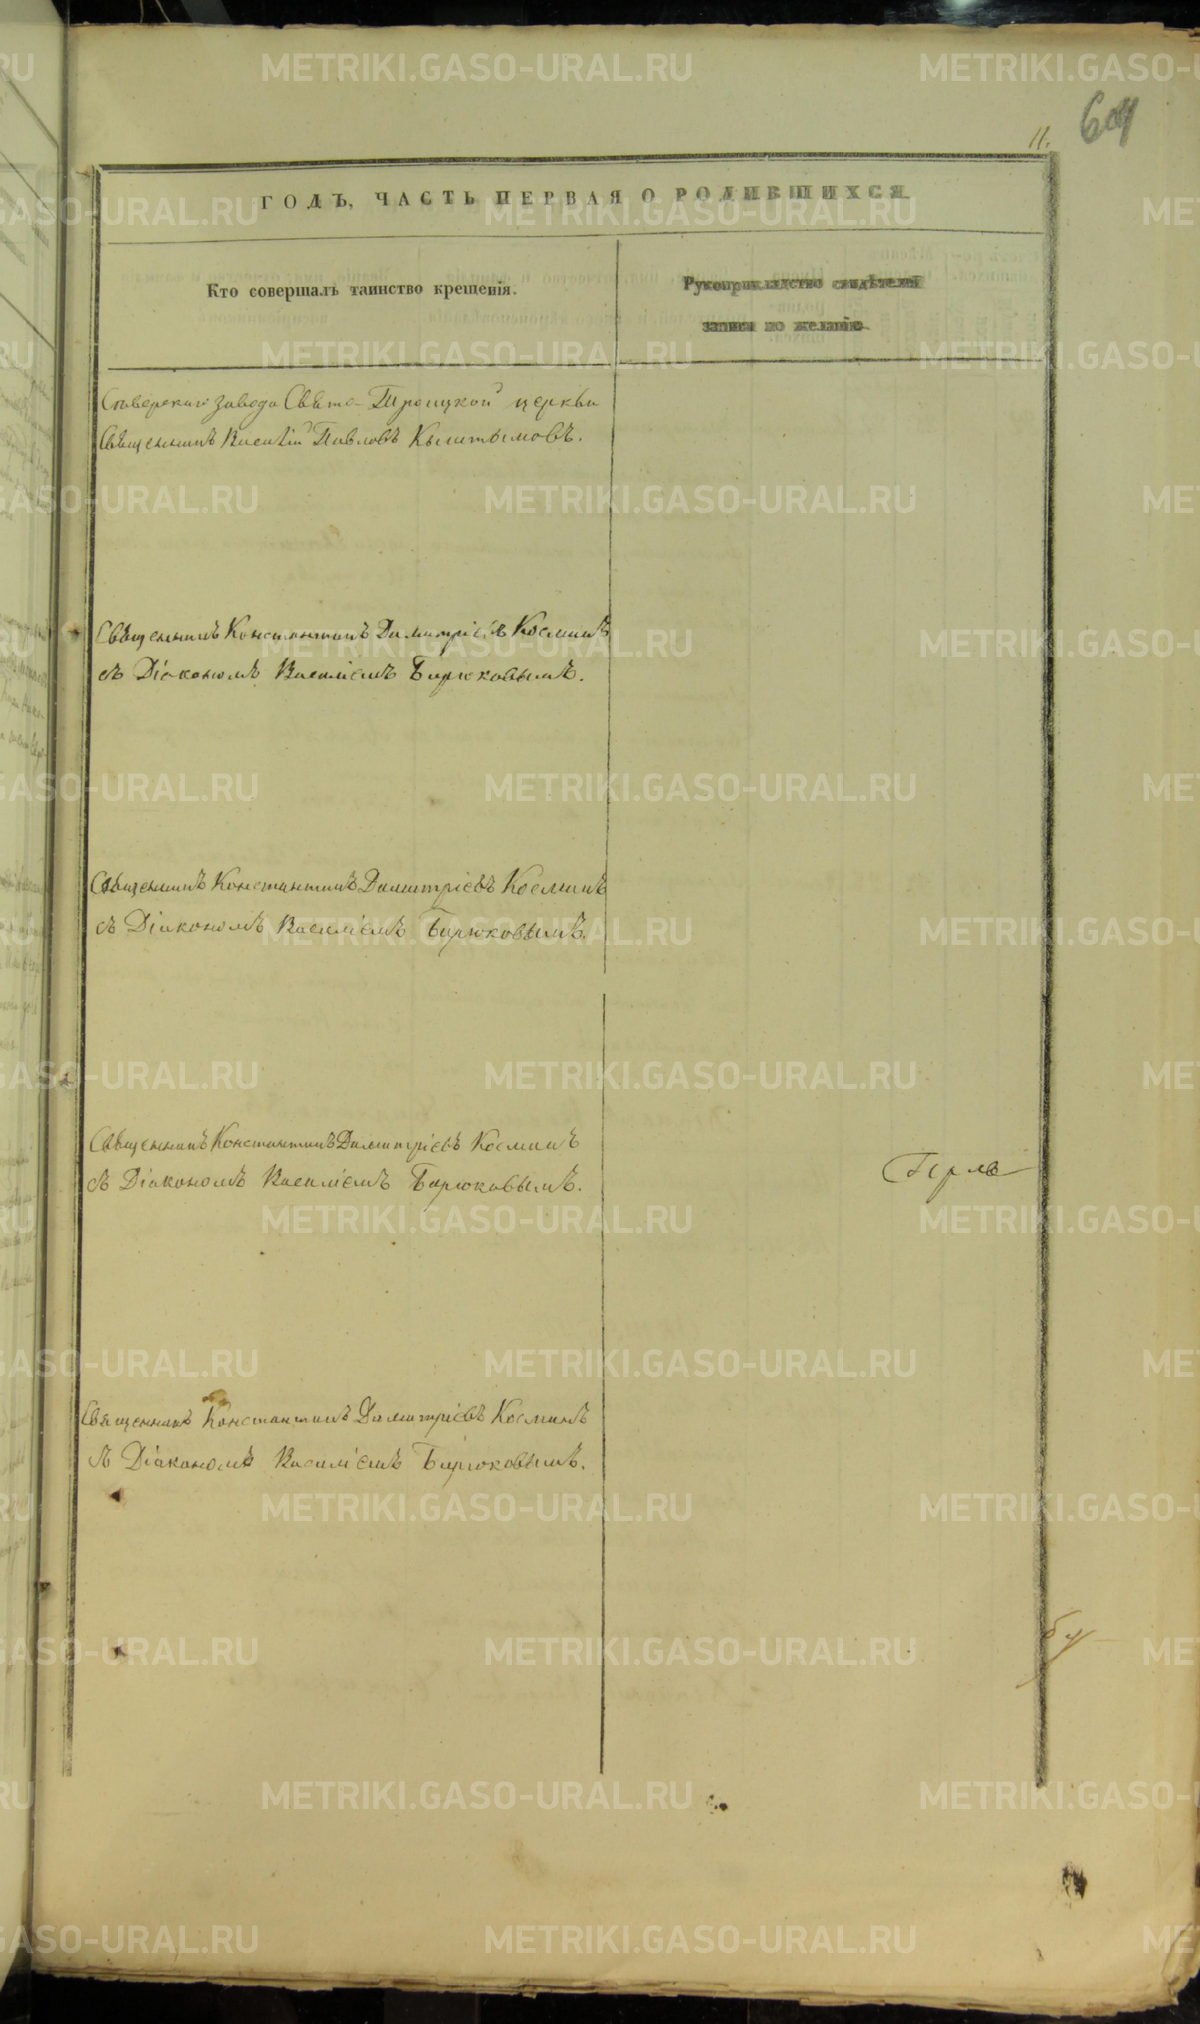 METRIKI.GASO-URAL.RU
11.
ГОДЪ, ЧАСТЬ ПЕРВАЯ О РОДИВШИХСЯ.
Кто совершалъ таинство крещенія.
Рукоприкладство свидѣтелей
записи по желанію.
завода Свято-Троицкой церкви
Священникъ Василій Павловъ Кыштымовъ.
Священникъ Константинъ Димитріевъ Косминъ
съ Діакономъ Василіемъ Бирюковымъ.
Священникъ Константинъ Димитріевъ Косминъ
съ Діакономъ Василіемъ Бирюковымъ.
Священникъ Константинъ Димитріевъ Косминъ
съ Діакономъ Василіемъ Бирюковымъ.
Священникъ Константинъ Димитріевъ Косминъ
съ Діакономъ Василіемъ Бирюковымъ.